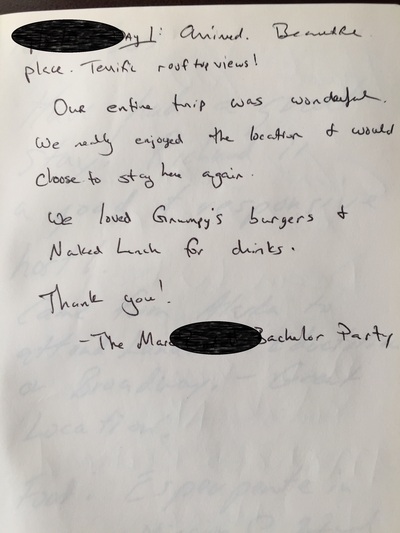 Day 1: Arrived. Beautiful
place. Terrific rooftop views!
Our entire trip was wonderful.
We really enjoyed the location & would
choose to stay here again.
We loved Grumpy's burgers &
Naked Lunch for drinks.
Thank you!
-The Bachelor Party